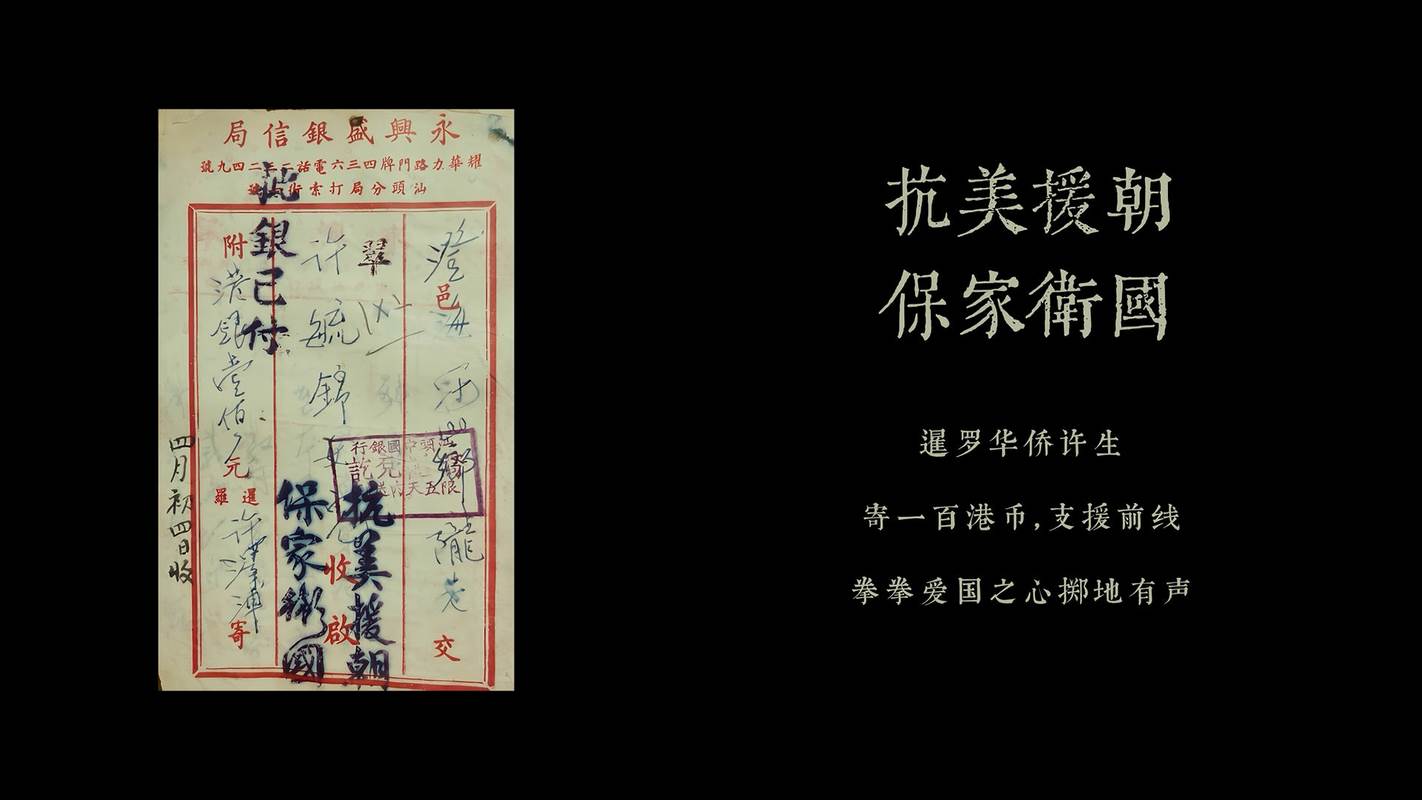 永興盛銀信局
耀華力路門牌四三六電話二三二四九號
汕頭分局打索街號
澄邑海冠山鄉隴
交
許毓錦
收啟
附港銀壹佰元
暹羅
許
寄
批銀已付
抗美援朝
保家衛國
汕頭中國銀行
兌訖
限五天內
四月初四日收
抗美援朝
保家衛國
暹罗华侨许生
寄一百港币,支援前线
拳拳爱国之心掷地有声